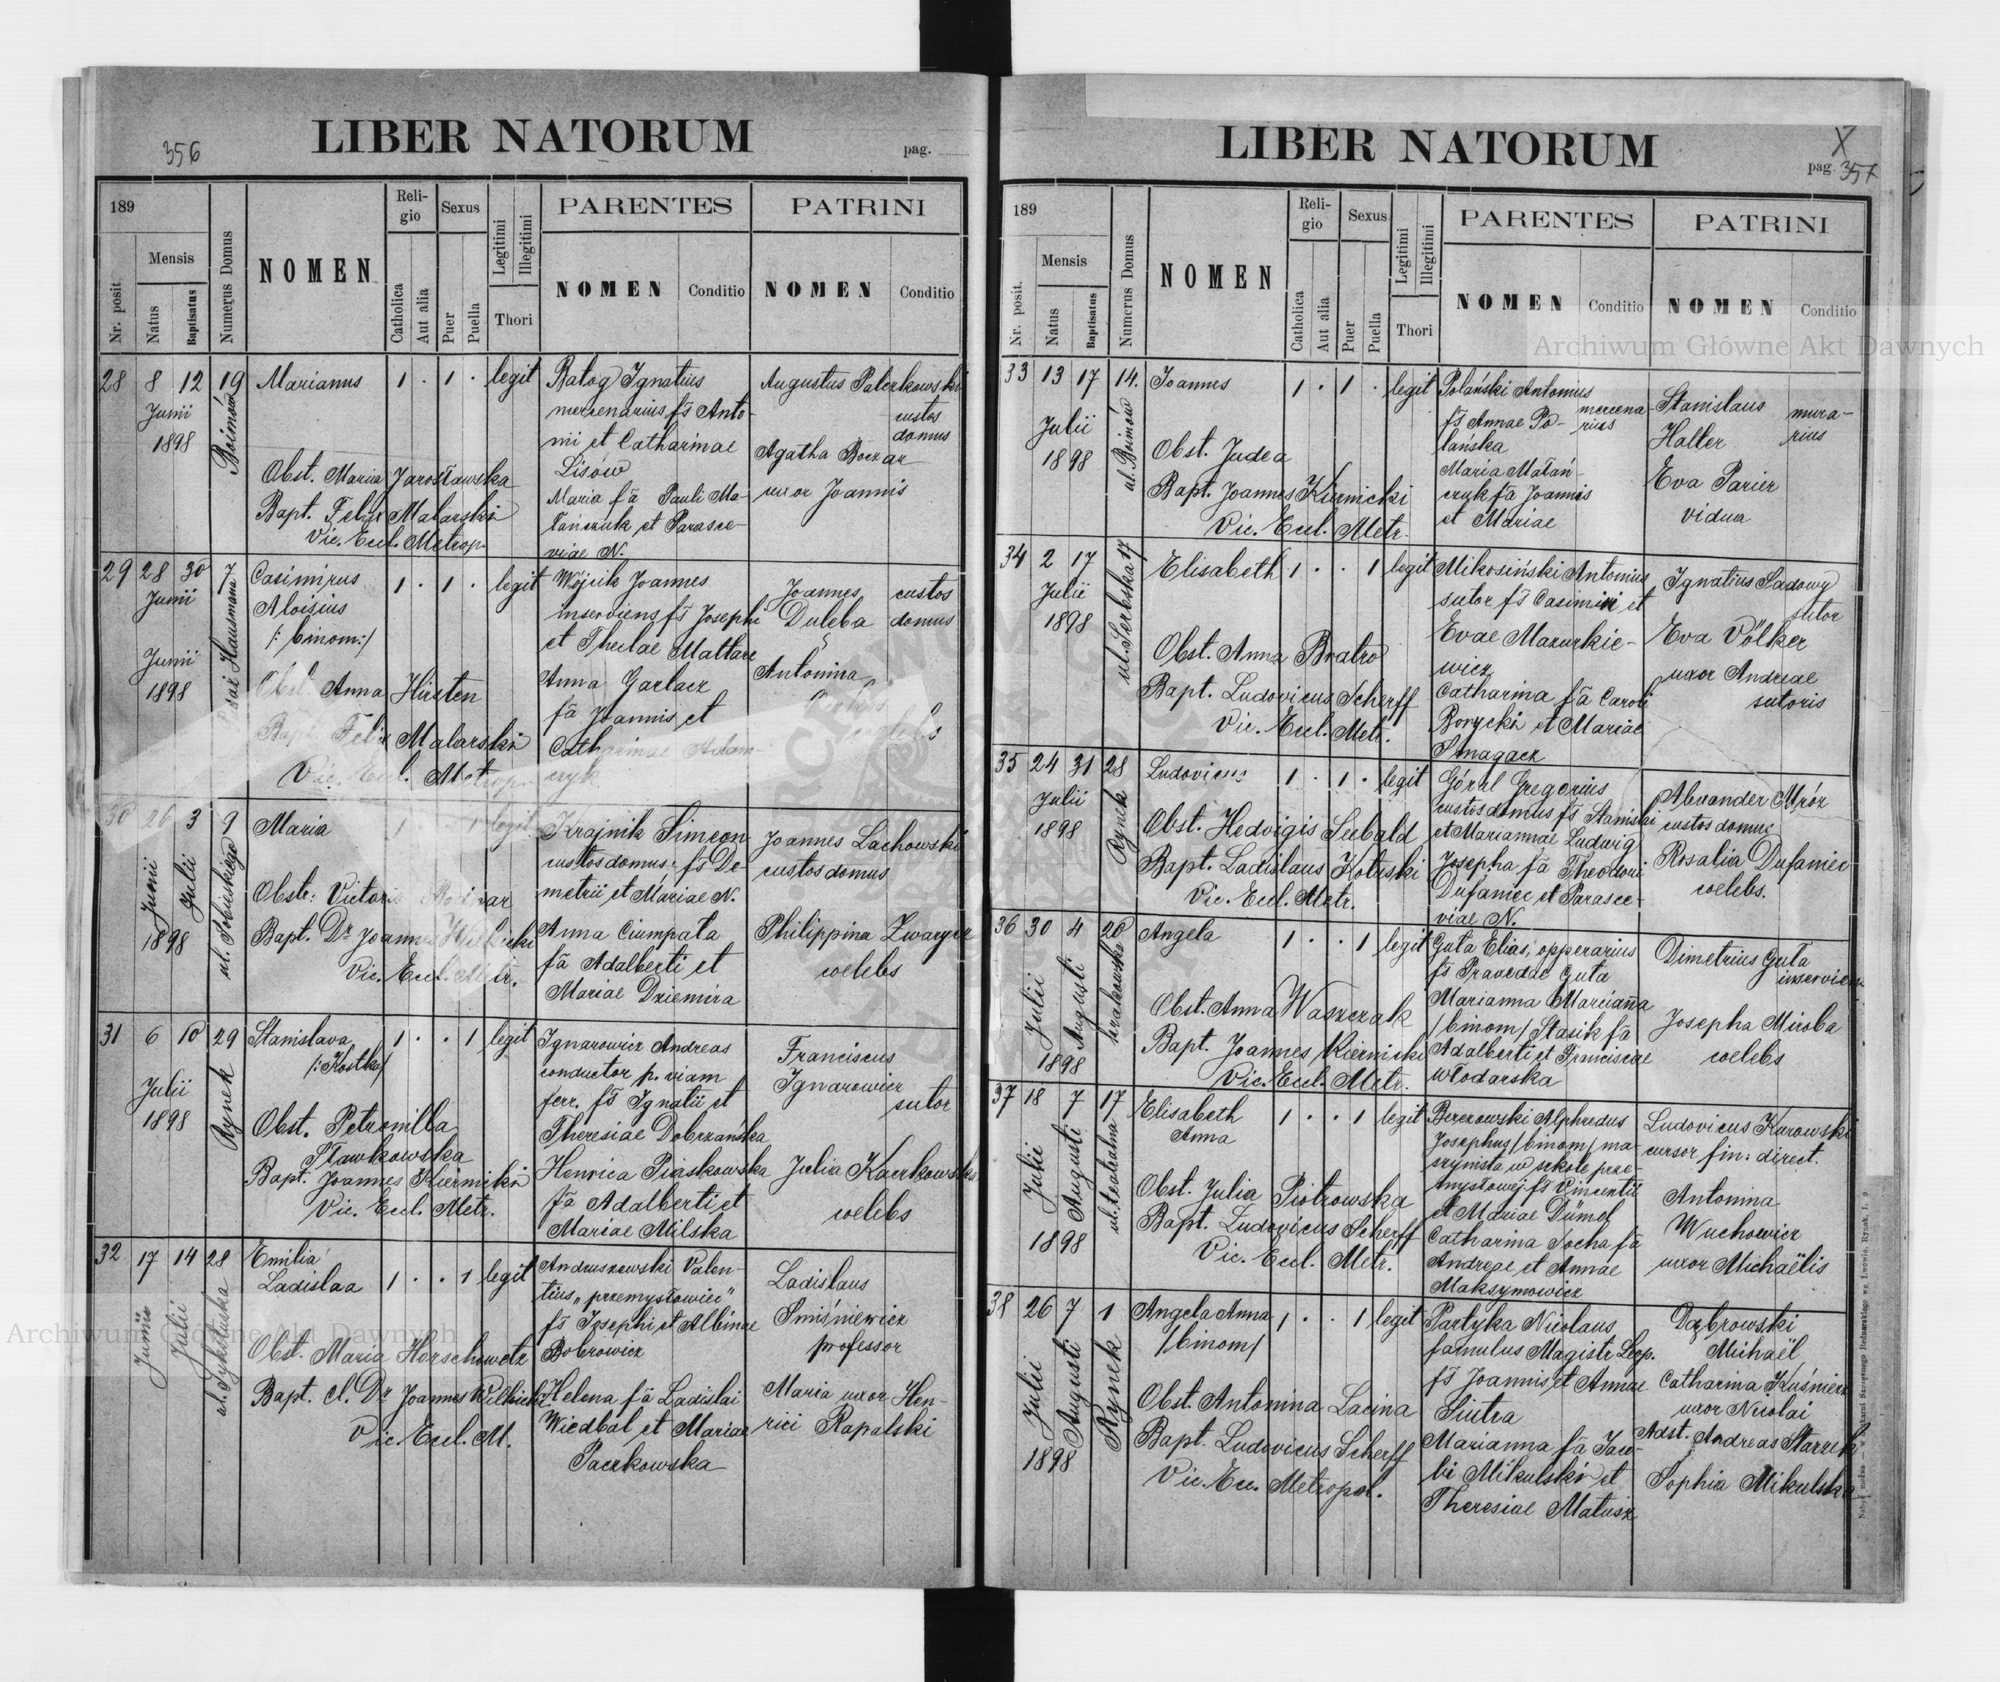 LIBER NATORUM
356
pag.
189
Mensis
Nr. posit.
Natus
Baptisatus
Numerus Domus
NOMEN
Reli-
gio
Catholica
Aut alia
Sexus
Puer
Puella
Legitimi
Illegitimi
Thori
PARENTES
NOMEN
Conditio
PATRINI
NOMEN
Conditio
28 8 12 19 Marianus 1 · 1 · legit
Junii
1898
Boimów
Obst. Maria Jarosławska
Bapt. Felix Malarski
Vic. Eccl. Metrop.
Ratog Ignatius
mercenarius fs Anto-
nii et Catharinae
Lisów
Maria fa Pauli Ma-
łańczuk et Parasce-
viae N.
Augustus Palczkowski
custos
domus
Agatha Boczar
uxor Joannis
29 28 30 7 Casimirus 1 · 1 · legit
Junii
Aloisius
/: binom:/
Junii
1898
Pasaż Hausmana
Obst. Anna Hirsten
Bapt. Felix Malarski
Vic. Eccl. Metrop.
Wójcik Joannes
inserviens fs Josephi
et Theclae Mattare
Anna Garlacz
fa Joannis et
Catharinae Adam-
czyk
Joannes custos
Duleba domus
Antonina
coelebs
30 26 3 9 Maria 1 · · 1 legit
Junii
Julii
1898
ul. Sobieskiego
Obstr: Victoria
Bapt. Dr Joannes Wilkicki
Vic. Eccl. Metr.
Krajnik Simeon
custos domus: fs De-
metrii et Mariae N.
Anna Ciumpata
fa Adalberti et
Mariae Dziemira
Joannes Lachowski
custos domus
Philippina Zwarycz
coelebs
31 6 10 29 Stanislava 1 · · 1 legit
/:Kostka/
Julii
1898
Rynek
Obst. Petronilla
Sławkowska
Bapt. Joannes Kiernicki
Vic. Eccl. Metr.
Ignarowicz Andreas
conductor p. viam
ferr. fs Ignatii et
Theresiae Dobrzańska
Henrica Piaskowska
fa Adalberti et
Mariae Milska
Franciscus
Ignarowicz
sutor
Julia Kaczkowska
coelebs
32 17 14 28 Emilia
Ladislaa 1 · · 1 legit
Junii
Julii
ul. Syktuska
Obst. Maria Herschowetz
Bapt. cl. Dr Joannes Wilkicki
Vic. Eccl. M.
Andruszewski Valen-
tius „przemysłowiec”
fs Josephi et Albinae
Bobrowicz
Helena fa Ladislai
Wiedbał et Mariae
Paczkowska
Ladislaus
Smiśniewicz
professor
Maria uxor Hen-
rici Rapalski
LIBER NATORUM
X
pag. 357
189
Mensis
Nr. posit.
Natus
Baptisatus
Numerus Domus
NOMEN
Reli-
gio
Catholica
Aut alia
Sexus
Puer
Puella
Legitimi
Illegitimi
Thori
PARENTES
NOMEN
Conditio
PATRINI
NOMEN
Conditio
33 13 17 14. Joannes 1 · 1 · legit
Julii
1898
ul. Boimów
Obst. Judea
Bapt. Joannes Kiernicki
Vic. Eccl. Metr.
Polański Antonius
mercena-
rius
fs Annae Po-
lańska
Maria Małań-
czuk fa Joannis
et Mariae
Stanislaus mura-
Halter rius
Eva Parier
vidua
34 2 17 17 Elisabeth 1 · · 1 legit
Julii
1898
ul. Serbska
Obst. Anna Bratro
Bapt. Ludovicus Scherff
Vic. Eccl. Metr.
Mikosiński Antonius
sutor fs Casimiri et
Evae Mazurkie-
wicz
Catharina fa Caroli
Borycki et Mariae
Smagacz
Ignatius Sadowy
sutor
Eva Völker
uxor Andreae
sutoris
35 24 31 28 Ludovicus 1 · 1 · legit
Julii
1898
Rynek
Obst. Hedvigis Seebald
Bapt. Ladislaus Kotuski
Vic. Eccl. Metr.
Góral Gregorius
custos domus fs Stanislai
et Mariannae Ludwig
Josepha fa Theodori
Dufaniec et Parasce-
viae N.
Alexander Mróz
custos domus
Rosalia Dufaniec
coelebs.
36 30 4 26 Angela 1 · · 1 legit
Julii
Augusti
1898
Obst. Anna Waszczak
Bapt. Joannes Kiernicki
Vic. Eccl. Metr.
Guta Elias, opperarius
fs Pravedae Guta
Marianna Marcianna
/binom/ Stasik fa
Adalberti et Franciscae
Włodarska
Dimetrius Guta
inserviens
Josepha Miroba
coelebs
37 18 7 17 Elisabeth 1 · · 1 legit
Anna
Julii
Augusti
1898
ul. teatralna
Obst. Julia Piotrowska
Bapt. Ludovicus Scherff
Vic. Eccl. Metr.
Berezowski Alphredus
Josephus /binom/ ma-
szynista w szkole prze-
mysłowej fs Vincentii
et Mariae Dümel
Catharina Socha fa
Andreae et Annae
Maksymowicz
Ludovicus Kurowski
cursor fin. direct.
Antonina
Wuchowicz
uxor Michaëlis
38 26 7 1 Angela Anna 1 · · 1 legit
/binom/
Julii
Augusti
1898
Rynek
Obst. Antonina Lacina
Bapt. Ludovicus Scherff
Vic. Ecc. Metropol.
Partyka Nicolaus
famulus Magistr. Leop.
fs Joannis et Annae
Siutra
Marianna fa Jaco-
bi Mikulski et
Theresiae Matusz
Dąbrowski
Michaël
Catharina Kuśnierz
uxor Nicolai
Adst. Andreas Starzek
Sophia Mikulska
Archiwum Główne Akt Dawnych
Archiwum Główne Akt Dawnych